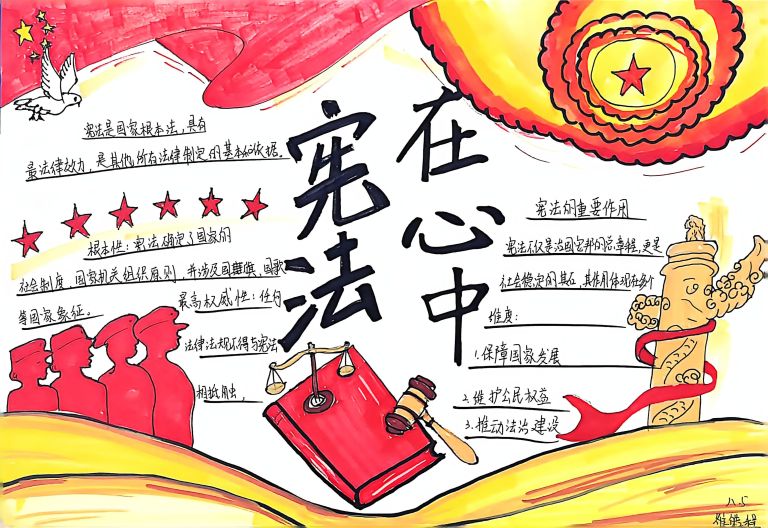 宪法
在心中
宪法是国家根本法，具有
最法律效力，是其他所有法律制定的基本和依据。
根本性：宪法确定了国家的
社会制度，国家机关组织原则，并涉及国旗，国歌
等国家象征。
最高权威性：任何
法律法规不得与宪法
相抵触。
宪法的重要作用
宪法不仅是治国安邦的总章程，更是
社会稳定的基石，其作用体现在多个
维度：
1.保障国家发展
2.维护公民权益
3.推动法治建设
八.5